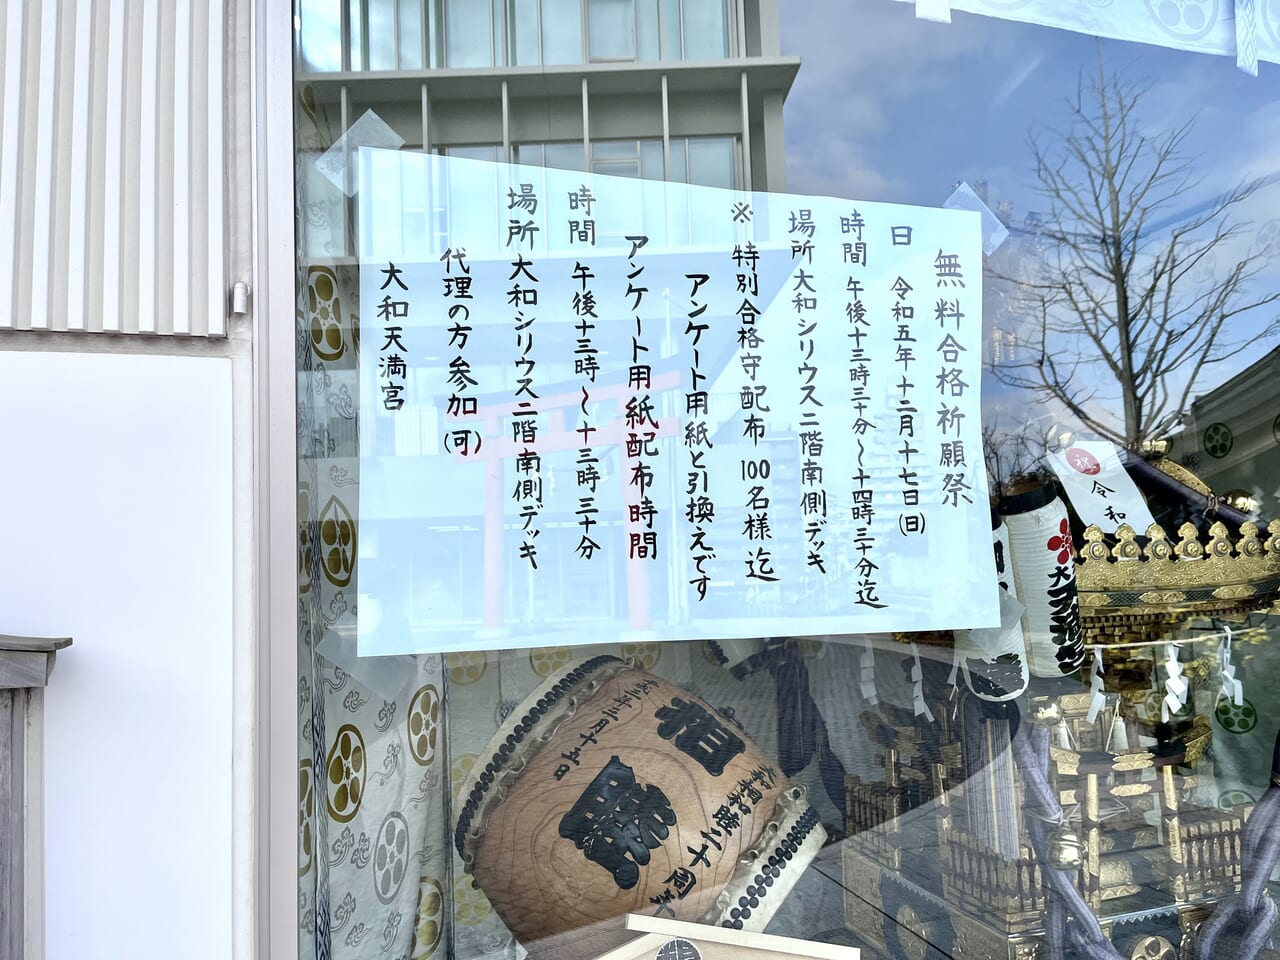 無料合格祈願祭
日 令和五年十二月十七日(日)
時間 午後十三時三十分〜十四時三十分迄
場所 大和シリウス二階南側デッキ
※ 特別合格守配布 100名様迄
アンケート用紙と引換えです
アンケート用紙配布時間
時間 午後十三時〜十三時三十分
場所 大和シリウス二階南側デッキ
代理の方参加(可)
大和天満宮
祝
令和
相
勝
成三年三月十五日
昭和陸二十周年